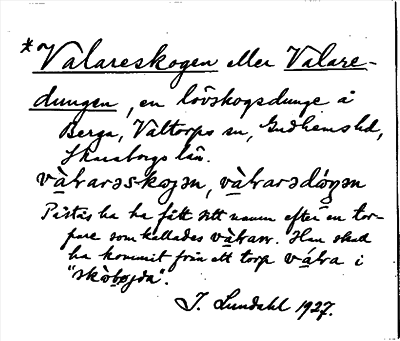 *Valareskogen eller Valare-
dungen, en lövskogsdunge å
Berga, Valtorps sn, Gudhems hd,
Skaraborgs län.
và̱ƚarəs-koǥən, và̱ƚarədóŋən
Påstås ha ha fått sitt namn efter en tor-
pare som kallades và̱ƚarn. Han skall
ha kommit från ett torp vá̱ƚa i
"skò̱bo̱jda".
J. Lundahl 1927.